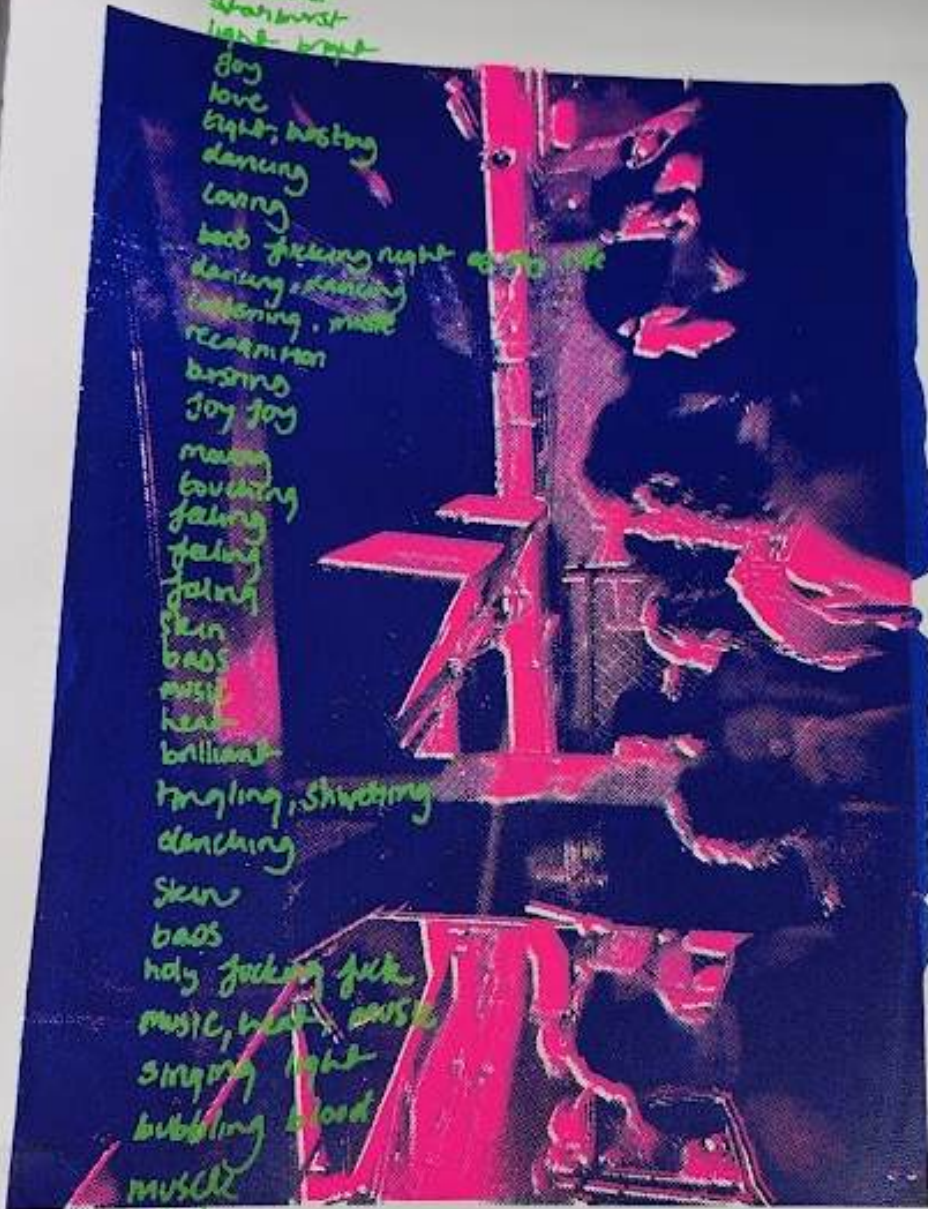 starburst
light bright
Joy
love
tight, busting
dancing
loving
fucking night of my life
dancing, dancing
music
recognition
busting
Joy Joy
moving
touching
feeling
feeling
feeling
skin
BAOS
music
heat
brilliant
tingling, shivering
clenching
skin
BAOS
holy fucking fuck
music, heat, music
singing light
bubbling blood
muscle